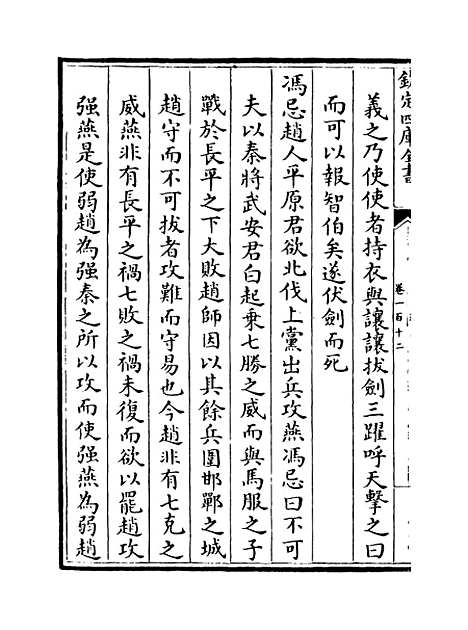 欽定四庫全書
卷一百十二
義之乃使使者持衣與讓讓拔劍三躍呼天擊之曰
而可以報智伯矣遂伏劍而死
馮忌趙人平原君欲北伐上黨出兵攻燕馮忌曰不可
夫以秦將武安君白起乗七勝之威而與馬服之子
戰於長平之下大敗趙師因以其餘兵圍邯鄲之城
趙守而不可拔者攻難而守易也今趙非有七克之
威燕非有長平之禍七敗之禍未復而欲以罷趙攻
强燕是使弱趙為强秦之所以攻而使强燕為弱趙